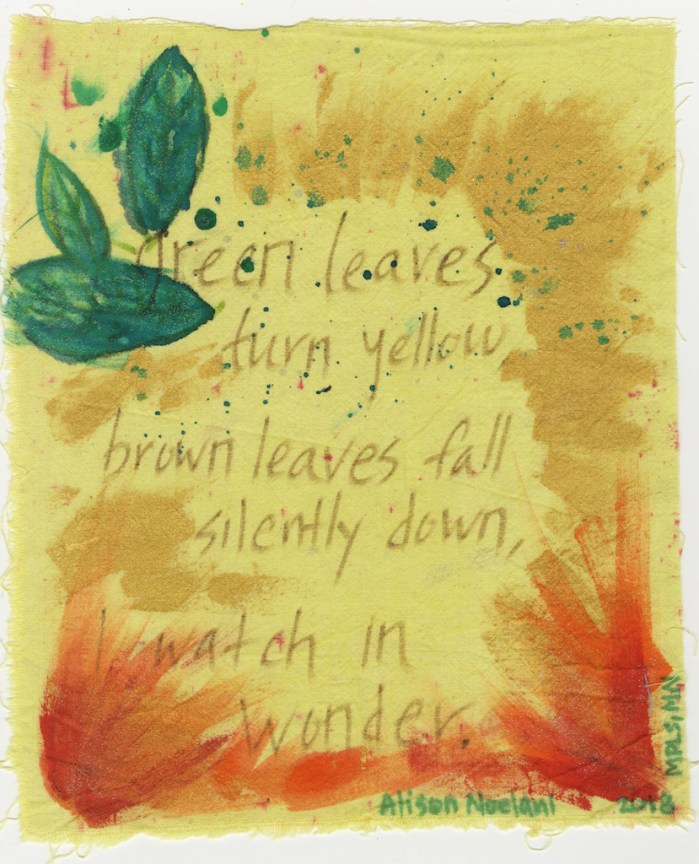 green leaves
turn yellow,
brown leaves fall
silently down,
I watch in
wonder.
Alison Noelani 2018
MPLS, MN